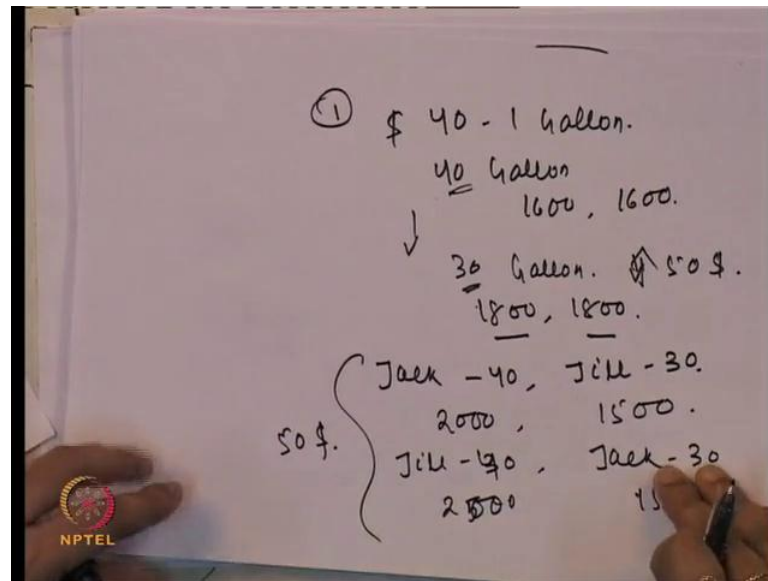 ① $ 40 - 1 Gallon.
40 Gallon
1600, 1600.
↓
30 Gallon. 50 $.
1800, 1800.
Jack - 40, Jill - 30.
2000, 1500.
50 $.
Jill - 40, Jack - 30
2000
NPTEL